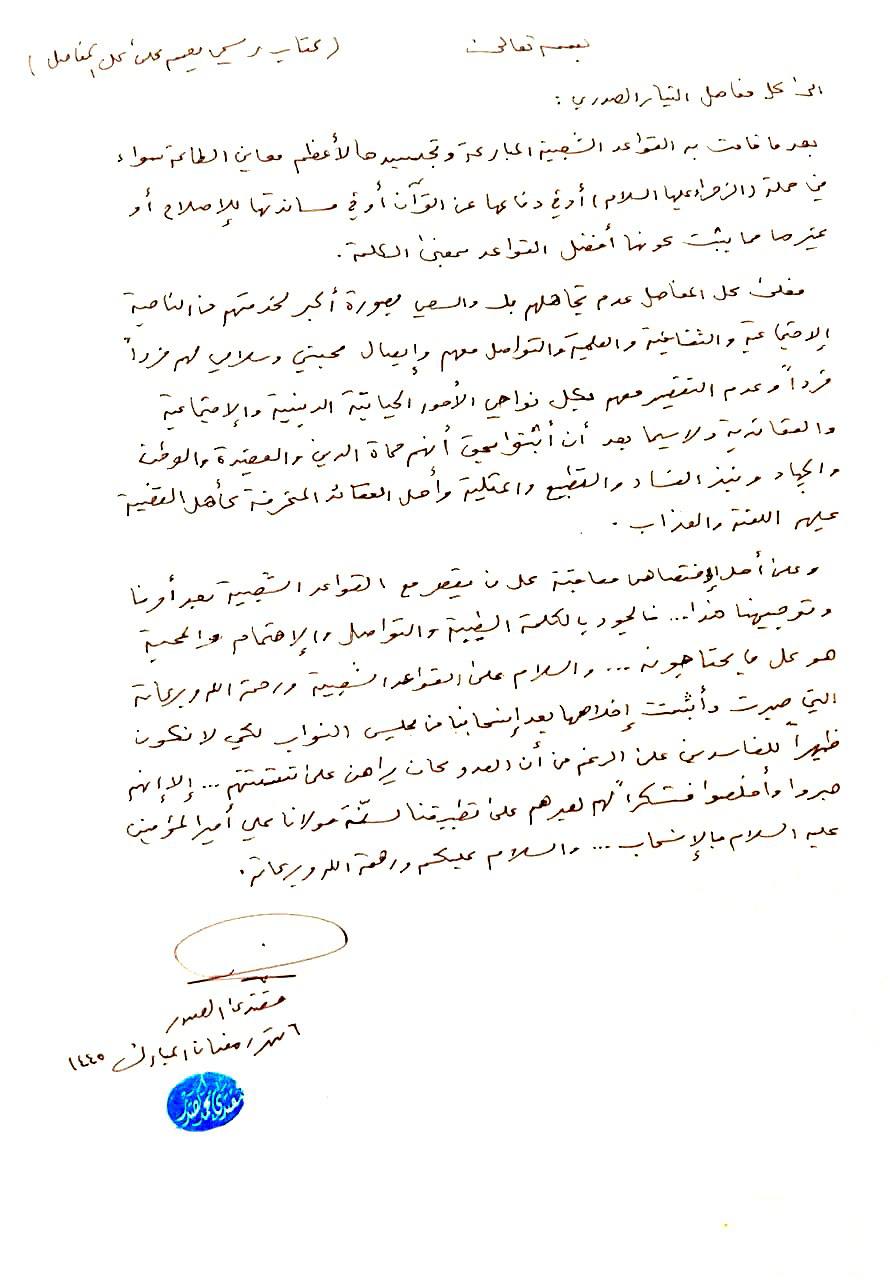 بسمه تعالى
(كتاب رسمي يعمم على كل المفاصل)
الى كل مفاصل التيار الصدري :
بعد ما قامت به القواعد الشعبية المباركة وتجسيدها لأعظم معاني الطاعة سواء
في حملة (الزهراء عليها السلام) أو في دفاعها عن القرآن أو في مساندتها للإصلاح أو
غيرها مما يثبت كونها أفضل القواعد بمعنى الكلمة .
فعلى كل المفاصل عدم تجاهلهم بل والسعي بصورة أكبر لخدمتهم من الناحية
الإجتماعية والثقافية والعلمية والتواصل معهم وإيصال محبتي وسلامي لهم فرداً
فرداً وعدم التقصير معهم بكل نواحي الأمور الحياتية الدينية والإجتماعية
والعقائدية ولا سيما بعد أن أثبتوا بحق أنهم حماة الدين والعقيدة والوطن
والجهاد ونبذ الفساد والتطبيع والمثلية وأهل العقائد المنحرفة كأهل القضية
عليهم اللعنة والعذاب .
وعلى أهل الإختصاص معاقبة كل من يقصر مع القواعد الشعبية بعد أمرنا
وتوجيهنا هذا... فالجود بالكلمة الطيبة والتواصل والإهتمام والمحبة
هو كل ما يحتاجونه ... والسلام على القواعد الشعبية ورحمة الله وبركاته
التي صبرت وأثبتت إخلاصها بعد إنسحابنا من مجلس النواب لكي لا نكون
ظهيراً للفاسدين على الرغم من أن العدو كان يراهن على تفتتهم ... إلا إنهم
صبروا وأخلصوا فشكراً لهم لصبرهم على تطبيقنا لسنّة مولانا علي أمير المؤمنين
عليه السلام بالإنسحاب ... والسلام عليكم ورحمة الله وبركاته .
مقتدى الصدر
٦ شهر رمضان المبارك ١٤٤٥